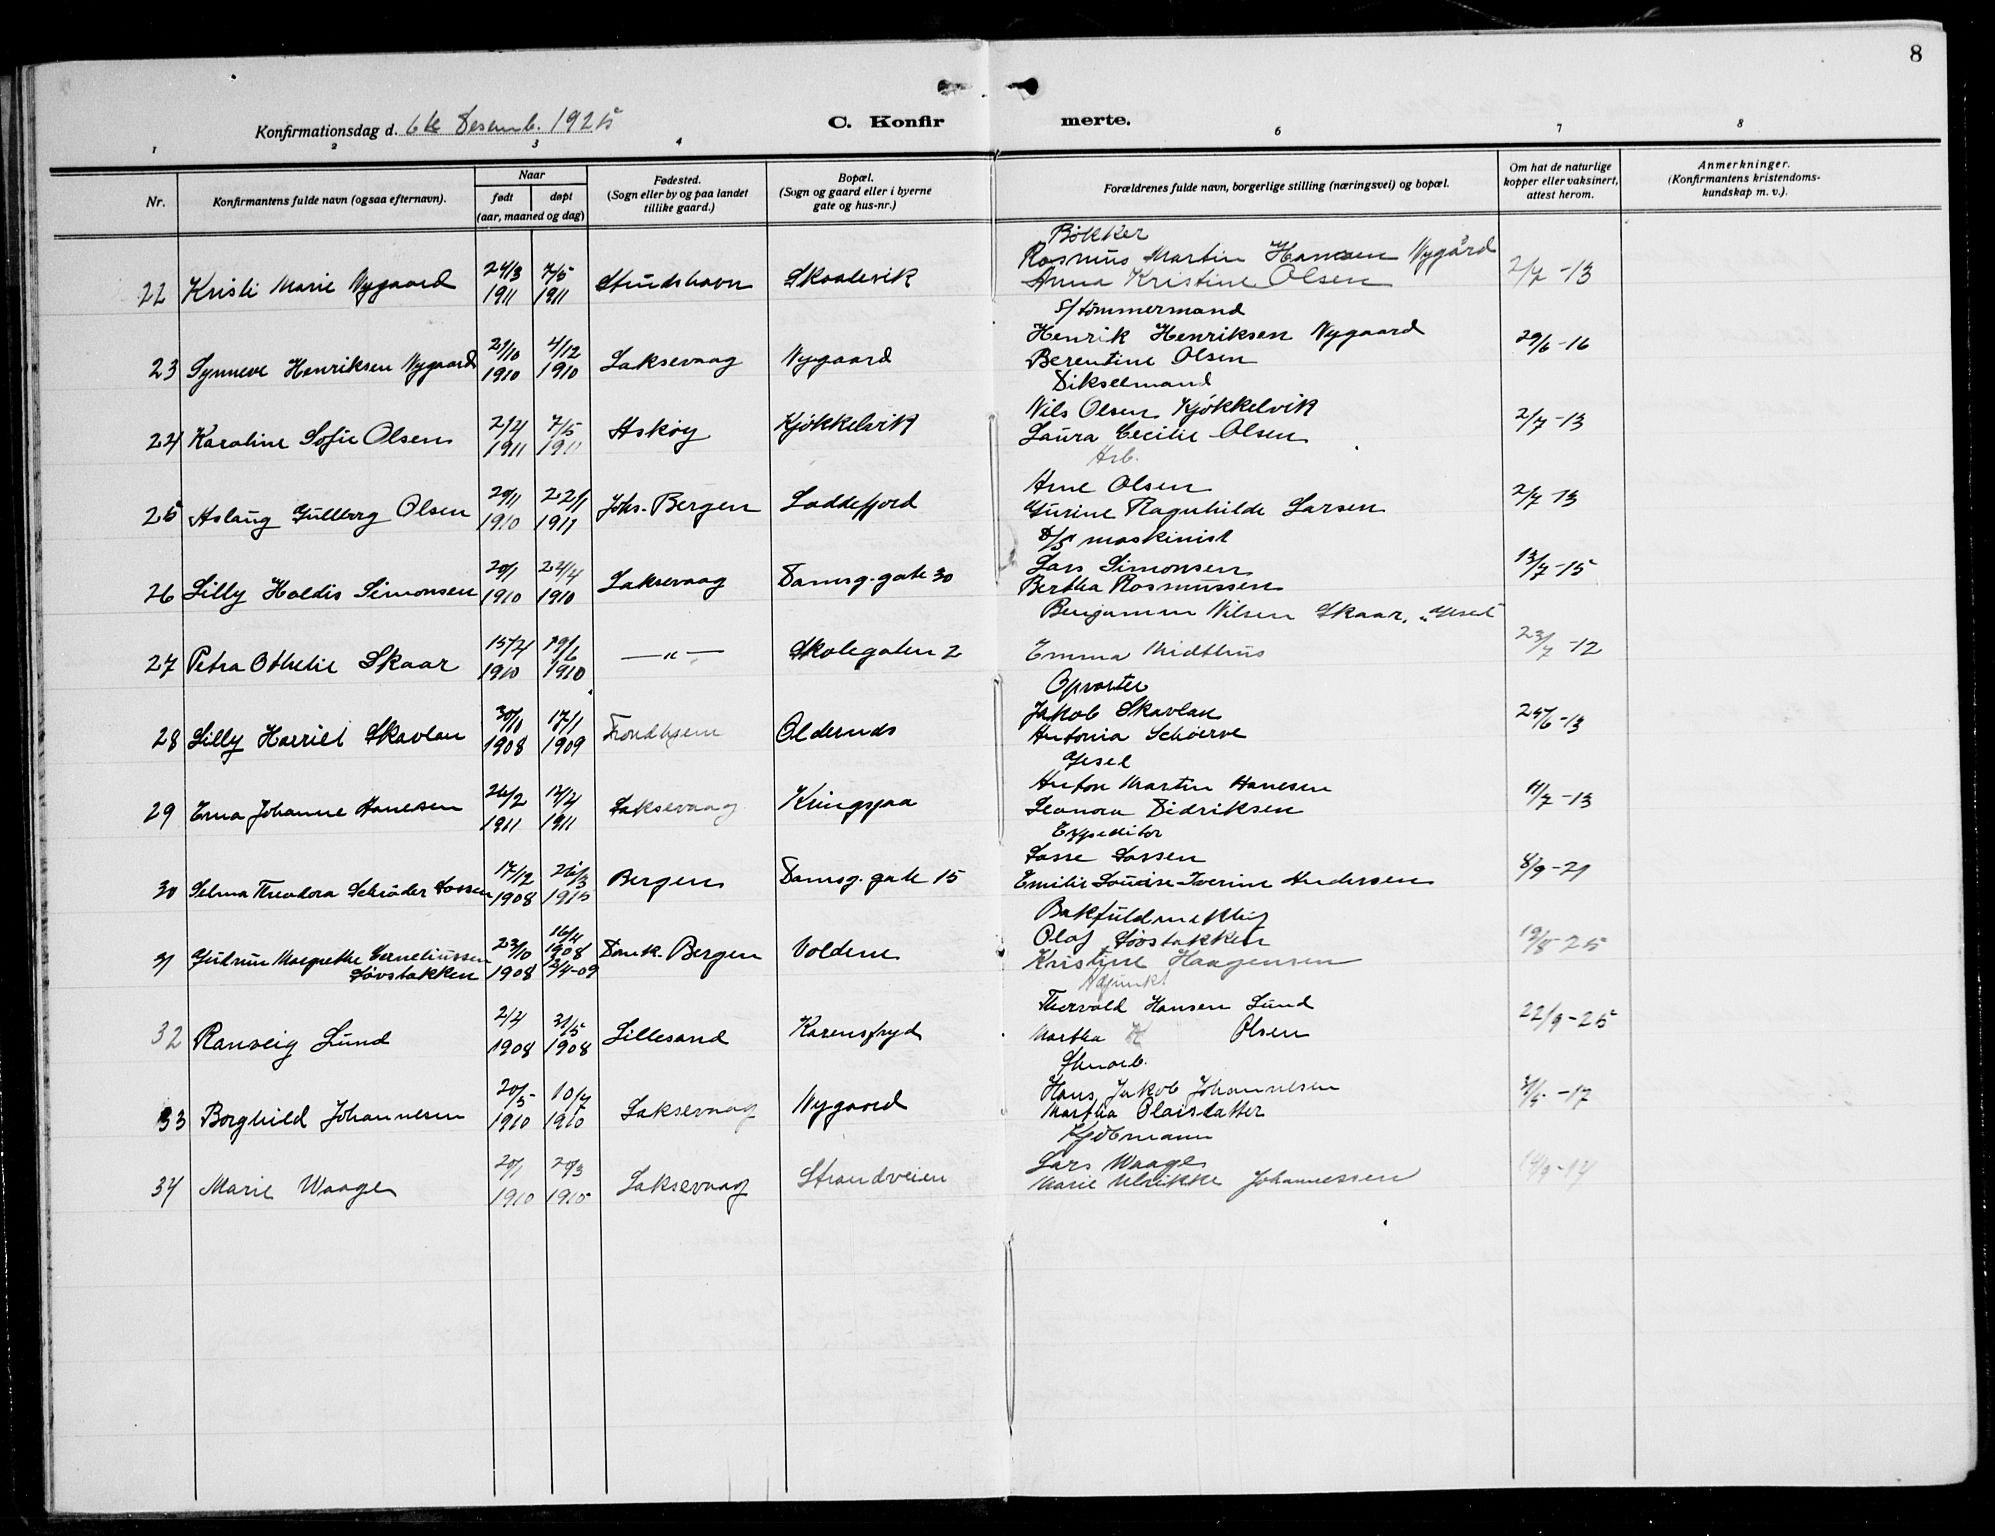 8
Konfirmationsdag d. 6te Desemb. 1925
C. Konfirmerte.
1 2 3 4 6 7 8
Nr.
Konfirmantens fulde navn (ogsaa efternavn).
Naar
født døpt
(aar, maaned og dag)
Fødested.
(Sogn eller by og paa landet
tillike gaard.)
Bopæl.
(Sogn og gaard eller i byerne
gate og hus-nr.)
Forældrenes fulde navn, borgerlige stilling (næringsvei) og bopæl.
Om hat de naturlige
kopper eller vaksinert,
attest herom.
Anmerkninger.
(Konfirmantens kristendoms-
kundskap m. v.).
Bøkker
Rasmus Martin Hansen Nygård
22 Kristi Marie Nygaard 24/3 1911 7/5 1911 Strudshavn Skaalevik Anna Kristine Olsen 2/7 -13
S/tømmermand
Henrik Henriksen Nygaard
23 Synneve Henriksen Nygaard 21/10 1910 4/12 1910 Laksevaag Nygaard Berentine Olsen 29/6 -16
Dikselmand
Nils Olsen Kjøkkelvik
24 Karoline Sofie Olsen 2/4 1911 7/5 1911 Askøy Kjøkkelvik Laura Cecilie Olsen 2/7 -13
Arb.
Arne Olsen
25 Aslaug Gullborg Olsen 29/11 1910 22/1 1911 Johs. Bergen Loddefjord Gurine Ragnhilde Larsen 2/7 13
D/S maskinist
Lars Simonsen
26 Lilly Haldis Simonsen 20/1 1910 24/4 1910 Laksevaag Damsg. gate 30 Bertha Rasmussen 13/7 -15
Benjamin Nilsen Skaar, Gjesel
27 Petra Othelie Skaar 15/4 1910 19/6 1910 — „ — Skolegaten 2 Emma Midthus 23/7 -12
Opvarter
Jakob Skavlan
28 Lilly Harriet Skavlan 30/11 1908 17/1 1909 Trondhjem Oldernds Antonia 25/6 -13
Gjesel
Anton Martin Hanesen
29 Erna Johanne Hanesen 26/2 1911 17/4 1911 Laksevaag Kringsjaa Leonora Didriksen 11/7 -13
Expeditør
Lasse Lassen
30 Selma Theodora Schrøder Lassen 17/12 1908 26/3 1915 Bergen Damsg. gate 15 Emilie Louise Iverine Andersen 8/9 -21
Olaf Løvstakken
31 Gudrun Margrethe Corneliussen Løvstakken 23/10 1908 16/4 1908 2/4-09 Domk. Bergen Voldene Kristine Haagensen 12/5 -25
Adjunkt
Thorvald Hansen Lund
32 Ranveig Lund 2/4 1908 31/5 1908 Lillesand Karensfryd Martha K Olsen 22/9 -25
Stuearb.
Hans Jakob Johannesen
33 Borghild Johannesen 20/5 1910 10/7 1910 Laksevaag Nygaard Martha Olaisdatter 3/5 -17
Kjøbmann
Lars Waage
34 Marie Waage 20/1 1910 20/3 1910 Laksevaag Strandveien Marie Ulrikke Johannessen 14/9 -14